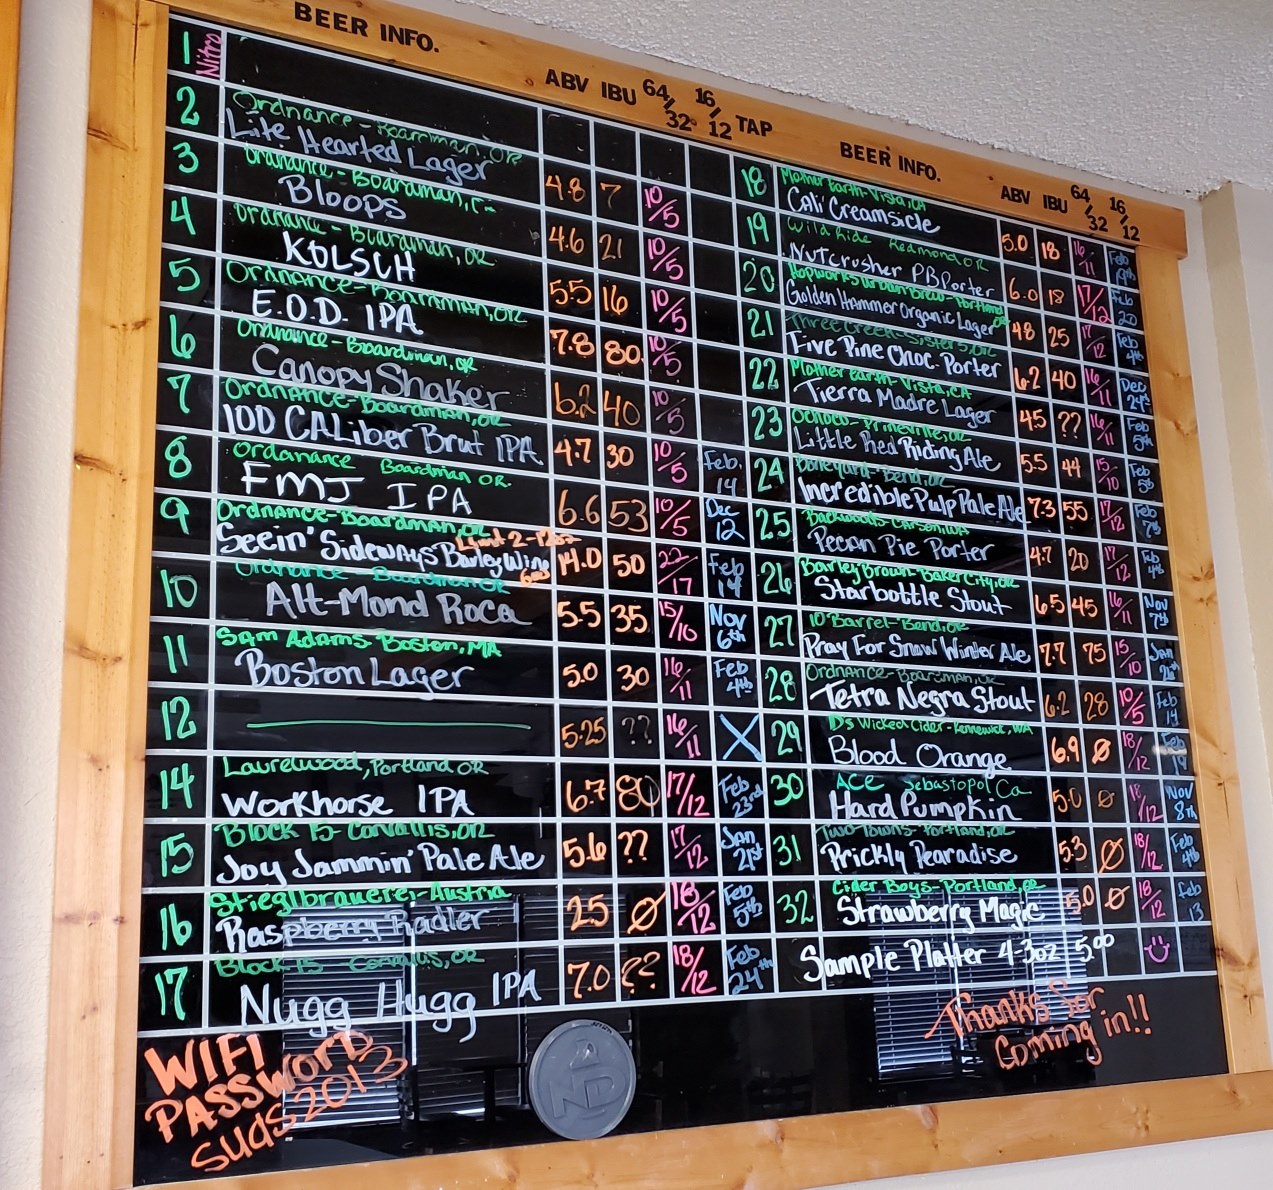 BEER INFO. ABV IBU 64/32 16/12 TAP
1 Nitro
2 Ordnance - Boardman, OR
Lite Hearted Lager 4.8 7 10/5
3 Ordnance - Boardman,
Bloops 4.6 21 10/5
4 Ordnance - Boardman, OR
KOLSCH 5.5 16 10/5
5 Ordnance - Boardman, OR
E.O.D. IPA 7.8 80 10/5
6 Ordnance - Boardman, OR
Canopy Shaker 6.2 40 10/5
7 Ordnance - Boardman, OR
100 CALiber Brut IPA 4.7 30 10/5 Feb. 14
8 Ordanance Boardman OR
FMJ IPA 6.6 53 10/5 Dec 12
9 Ordnance - Boardman, OR
Limit 2 -
Seein' Sideways Barley Wine 14.0 50 22/17 Feb 14
10 Ordnance Boardman OR
Alt-Mond Roca 5.5 35 15/10 Nov 6th
11 Sam Adams - Boston, MA
Boston Lager 5.0 30 16/11 Feb 4th
12 5.25 ?? 16/11 X
14 Laurelwood, Portland OR
Workhorse IPA 6.7 80 17/12 Feb 23rd
15 Block 15 - Corvallis, OR
Joy Jammin' Pale Ale 5.6 ?? 17/12 Jan 21st
16 Stieglbrauerei - Austria
Raspberry Radler 2.5 Ø 18/12 Feb 5th
17 Block 15 - Corvallis, OR
Nugg Hugg IPA 7.0 ?? 18/12 Feb 24th
WIFI
PASSWORD
suds2013
BEER INFO. ABV IBU 64/32 16/12
18 Mother Earth - Vista, CA
Cali Creamsicle 5.0 18 16/11 Feb 19th
19 Wild Ride Redmond OR
Nutcrusher PB Porter 6.0 18 17/12 Feb 20
20 Hopworks Urban Brew - Portland OR
Golden Hammer Organic Lager 4.8 25 17/12 Feb 4th
21 Three Creeks - Sisters, OR
Five Pine Choc. Porter 6.2 40 16/11 Dec 24th
22 Mother Earth - Vista, CA
Tierra Madre Lager 4.5 ?? 16/11 Feb 5th
23 Ochoco - Prineville, OR
Little Red Riding Ale 5.5 44 15/10 Feb 5th
24 Boneyard - Bend, OR
Incredible Pulp Pale Ale 7.3 55 17/12 Feb 7th
25 Backwoods - Carson, WA
Pecan Pie Porter 4.7 20 17/12 Feb 4th
26 Barley Brown - Baker City, OR
Starbottle Stout 6.5 45 16/11 Nov 7th
27 10 Barrel - Bend, OR
Pray For Snow Winter Ale 7.7 75 15/10 Jan 21st
28 Ordnance - Boardman, OR
Tetra Negra Stout 6.2 28 10/5 Feb 14
29 D's Wicked Cider - Kennewick, WA
Blood Orange 6.9 Ø 18/12 Feb 19
30 ACE Sebastopol Ca
Hard Pumpkin 5.0 Ø 18/12 Nov 8th
31 Two Towns - Portland, OR
Prickly Pearadise 5.3 Ø 18/12 Feb 4th
32 Cider Boys - Portland, OR
Strawberry Magic 5.0 Ø 18/12 Feb 13
Sample Platter 4 3oz 5.00
Thanks for
Coming in!!